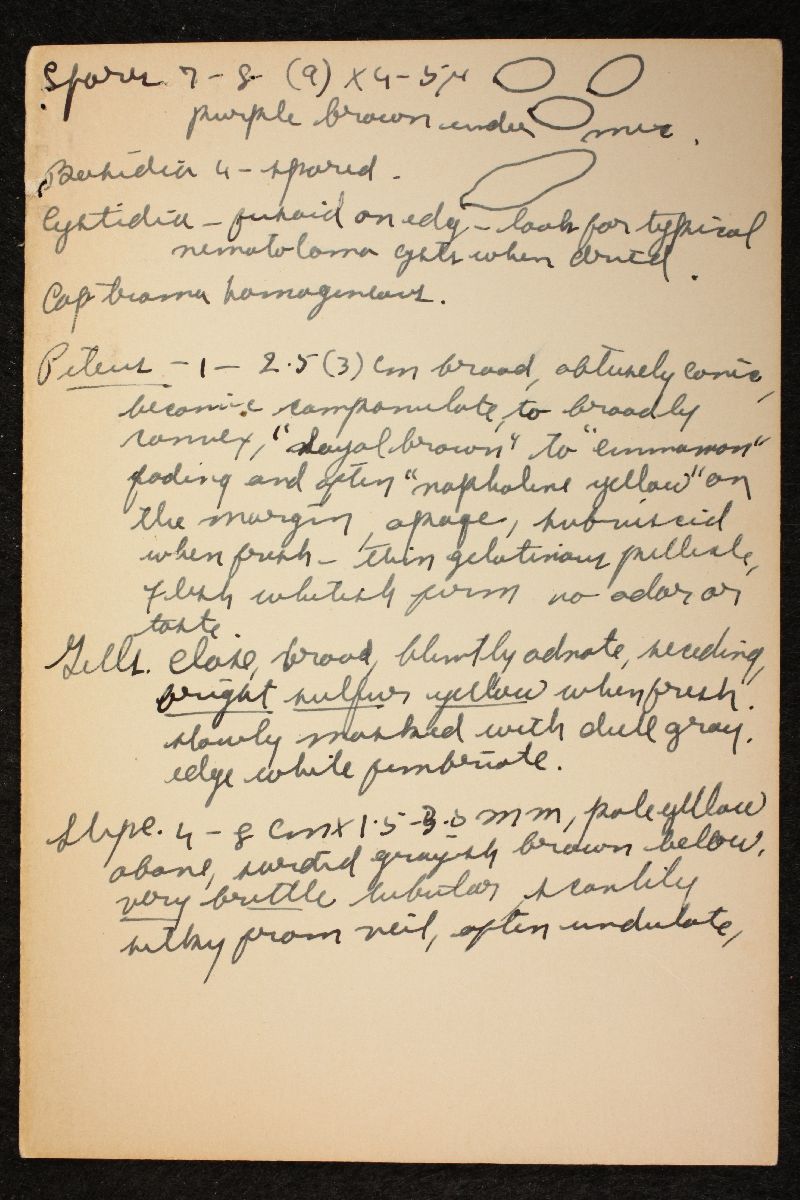 Spores 7-8 (9) x 4-5µ
purple brown under mic.
Basidia 4-spored.
Cystidia - fusoid on edg - look for typical
nematoloma cysts when dried.
Cap trama homogeneous.
Pileus - 1 - 2.5 (3) cm broad, obtusely conic,
becoming campanulate, to broadly
convex, "Sayal brown" to "cinnamon"
fading and often "napthaline yellow" on
the margin, opaqe, subviscid
when fresh - thin gelatinous pellicle,
flesh whitish firm no odor or
taste.
Gills. close, broad, bluntly adnate, seceding,
bright sulfur yellow when fresh.
slowly masked with dull gray.
edge white fimbriate.
Stipe. 4 - 8 cm x 1.5-3.0 mm, pale yellow
above, sordid grayish brown below.
very brittle tubular, scantily
silky from veil, often undulate,